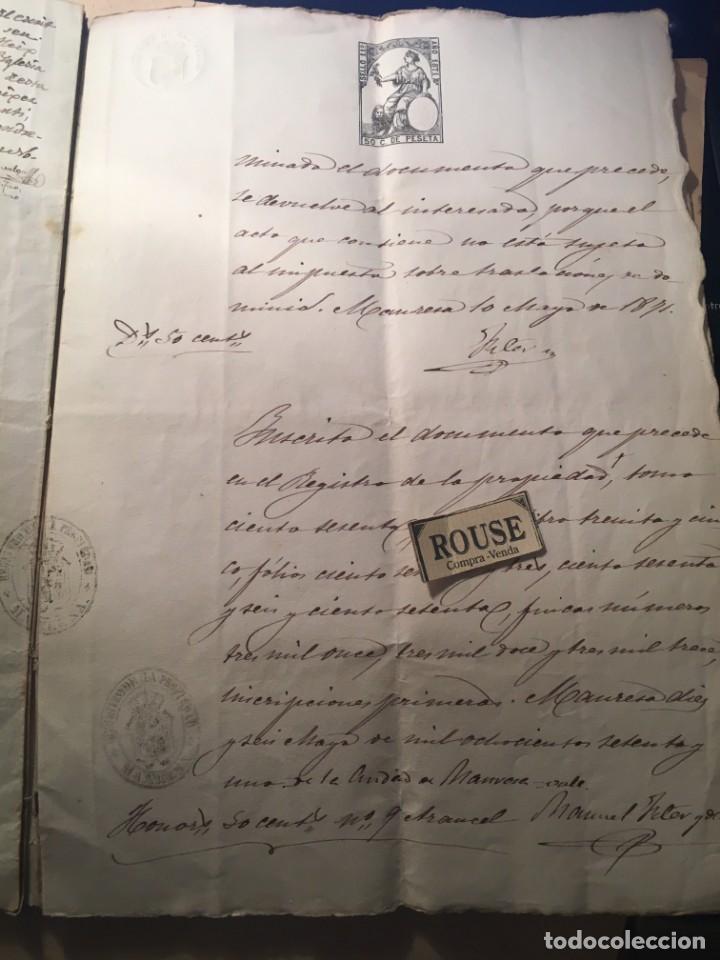 SELLO 11º AÑO 1871
50 C. DE PESETA
minado el documento que precede,
se devuelve al interesado, porque el
acto que contiene no está sujeto
al impuesto sobre traslaciones de do
minio. Manresa 10 Mayo de 1871.
Dºs 50 centˢ
Inscrito el documento que precede
en el Registro de la propiedad, tomo
ciento sesenta, libro treinta y cin
co, fólios ciento y tres, ciento sesenta
y seis y ciento setenta, fincas números
tres mil once, tres mil doce y tres mil trece,
inscripciones primeras. Manresa diez
y seis Mayo de mil ochocientos setenta y
uno. de la Ciudad de Manresa vale
Honorˢ 50 centˢ nº 9 Arancel Manuel
ROUSE
Compra-Venta
REGISTRO DE LA PROPIEDAD
MANRESA
todocoleccion
todocoleccion.net